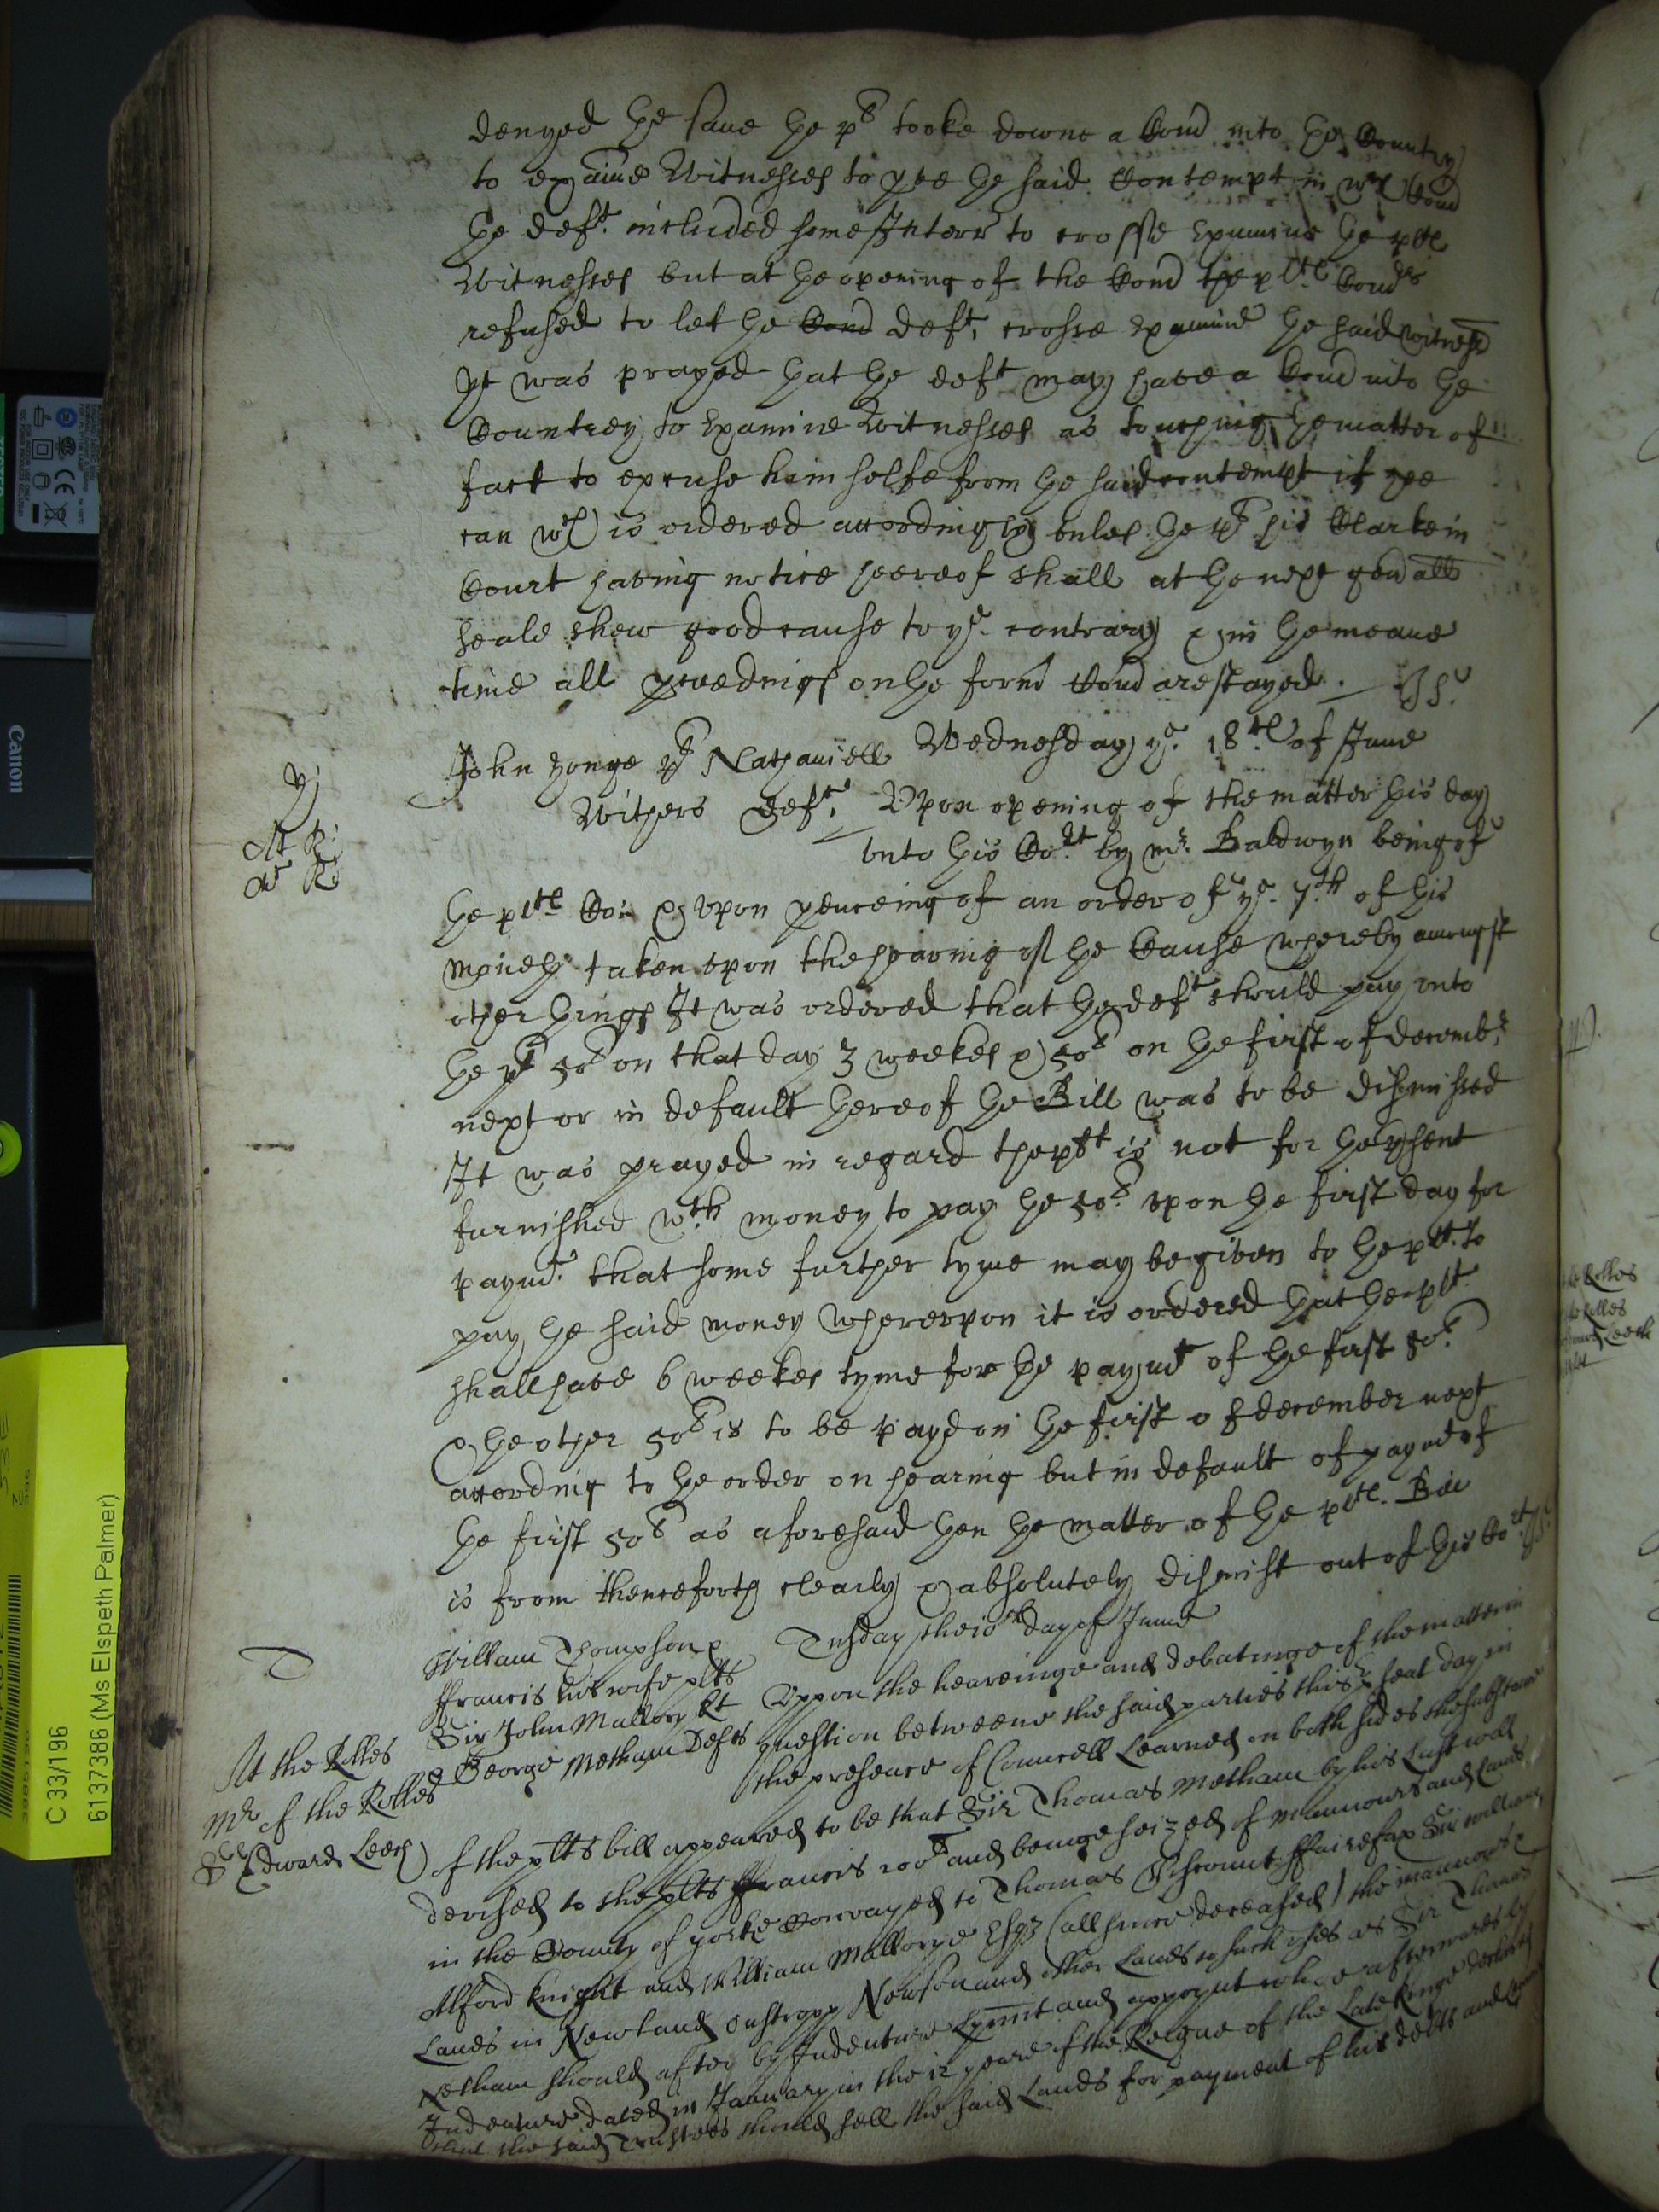 denyed the same the pl tooke downe a Comn into the Country
to examine Witnesses to prove the said Contempt in wch Comn
the deft. included some Interr to crosse Examine the plts
Witnesses but at the opening of the Comn the plts Comrs
refused to let the Comn deft, crosse Examine the said witnesses
It was prayed that the deft may have a Comn into the
Countrey to Examine Witnesses as touching the matter of
fact to excuse him selfe from the said contempt if hee
can wch is ordered accordingly unles the pl his Clarke in
Court having notice hereof shall at the next genall
seale shew good cause to ye. contrary & in the meane
time all proceedings on the formr Comn are stayed.
John Yonge pl Nathaniell Wednesday ye. 18th of June
Withers Deft. Vpon opening of the matter this day
vnto this Cort by mr. Baldwyn being of
the plts Con & Vpon pervseing of an order of ye. 7th of this
moneth taken vpon the hearing of the Cause whereby amongst
other things It was ordered that the deft should pay vnto
the pl 50l on that day 3 weekes & 50l on the first of decembr
next or in default thereof the Bill was to be dismissed
It was prayed in regard the plt is not for the present
furnished wth money to pay the 50l. vpon the first day for
paymt. that some further tyme may be given to the plt. to
pay the said money wherevpon it is ordered that the plt
shall have 6 weekes tyme for the paymt of the first 50l
& the other 50l is to be payd on the first of december next
according to the order on hearing but in default of paymt of
the first 50l as aforesaid then the matter of the plts. Bill
is from thenceforth clearly & absolutely dismist out of this Cort
William Thompson & Tusday the 10th day of June
ffrancis his wife plts
Sir John Mallory kt Vppon the heareinge and debatinge of the matter in
George Metham Defts question betweene the said parties this psent day in
At the Rolles
Mr of the Rolles
Sr Edward Leech
the presence of Councell Learned on both sides the substance
of the plts bill appeared to be that Sir Thomas Metham by his Last will
devised to the plts ffrancis 200l and beinge seized of mannours and Lands
in the County of yorke Convayed to Thomas Viscount ffairefax Sir william
Alford knight and William Mallorye Esqr (all since deceased) the mannor &
Lands in Newland Ousthropp Newson and other Lands to such vses as Sir Thomas
Metham should after by Indenture Lymit and appoynt whoe afterwards by
Indenture dated in January in the 12 yeare of the Reigne of the Late kinge declared
that the said Trustees should sell the said Lands for payment of his debts and